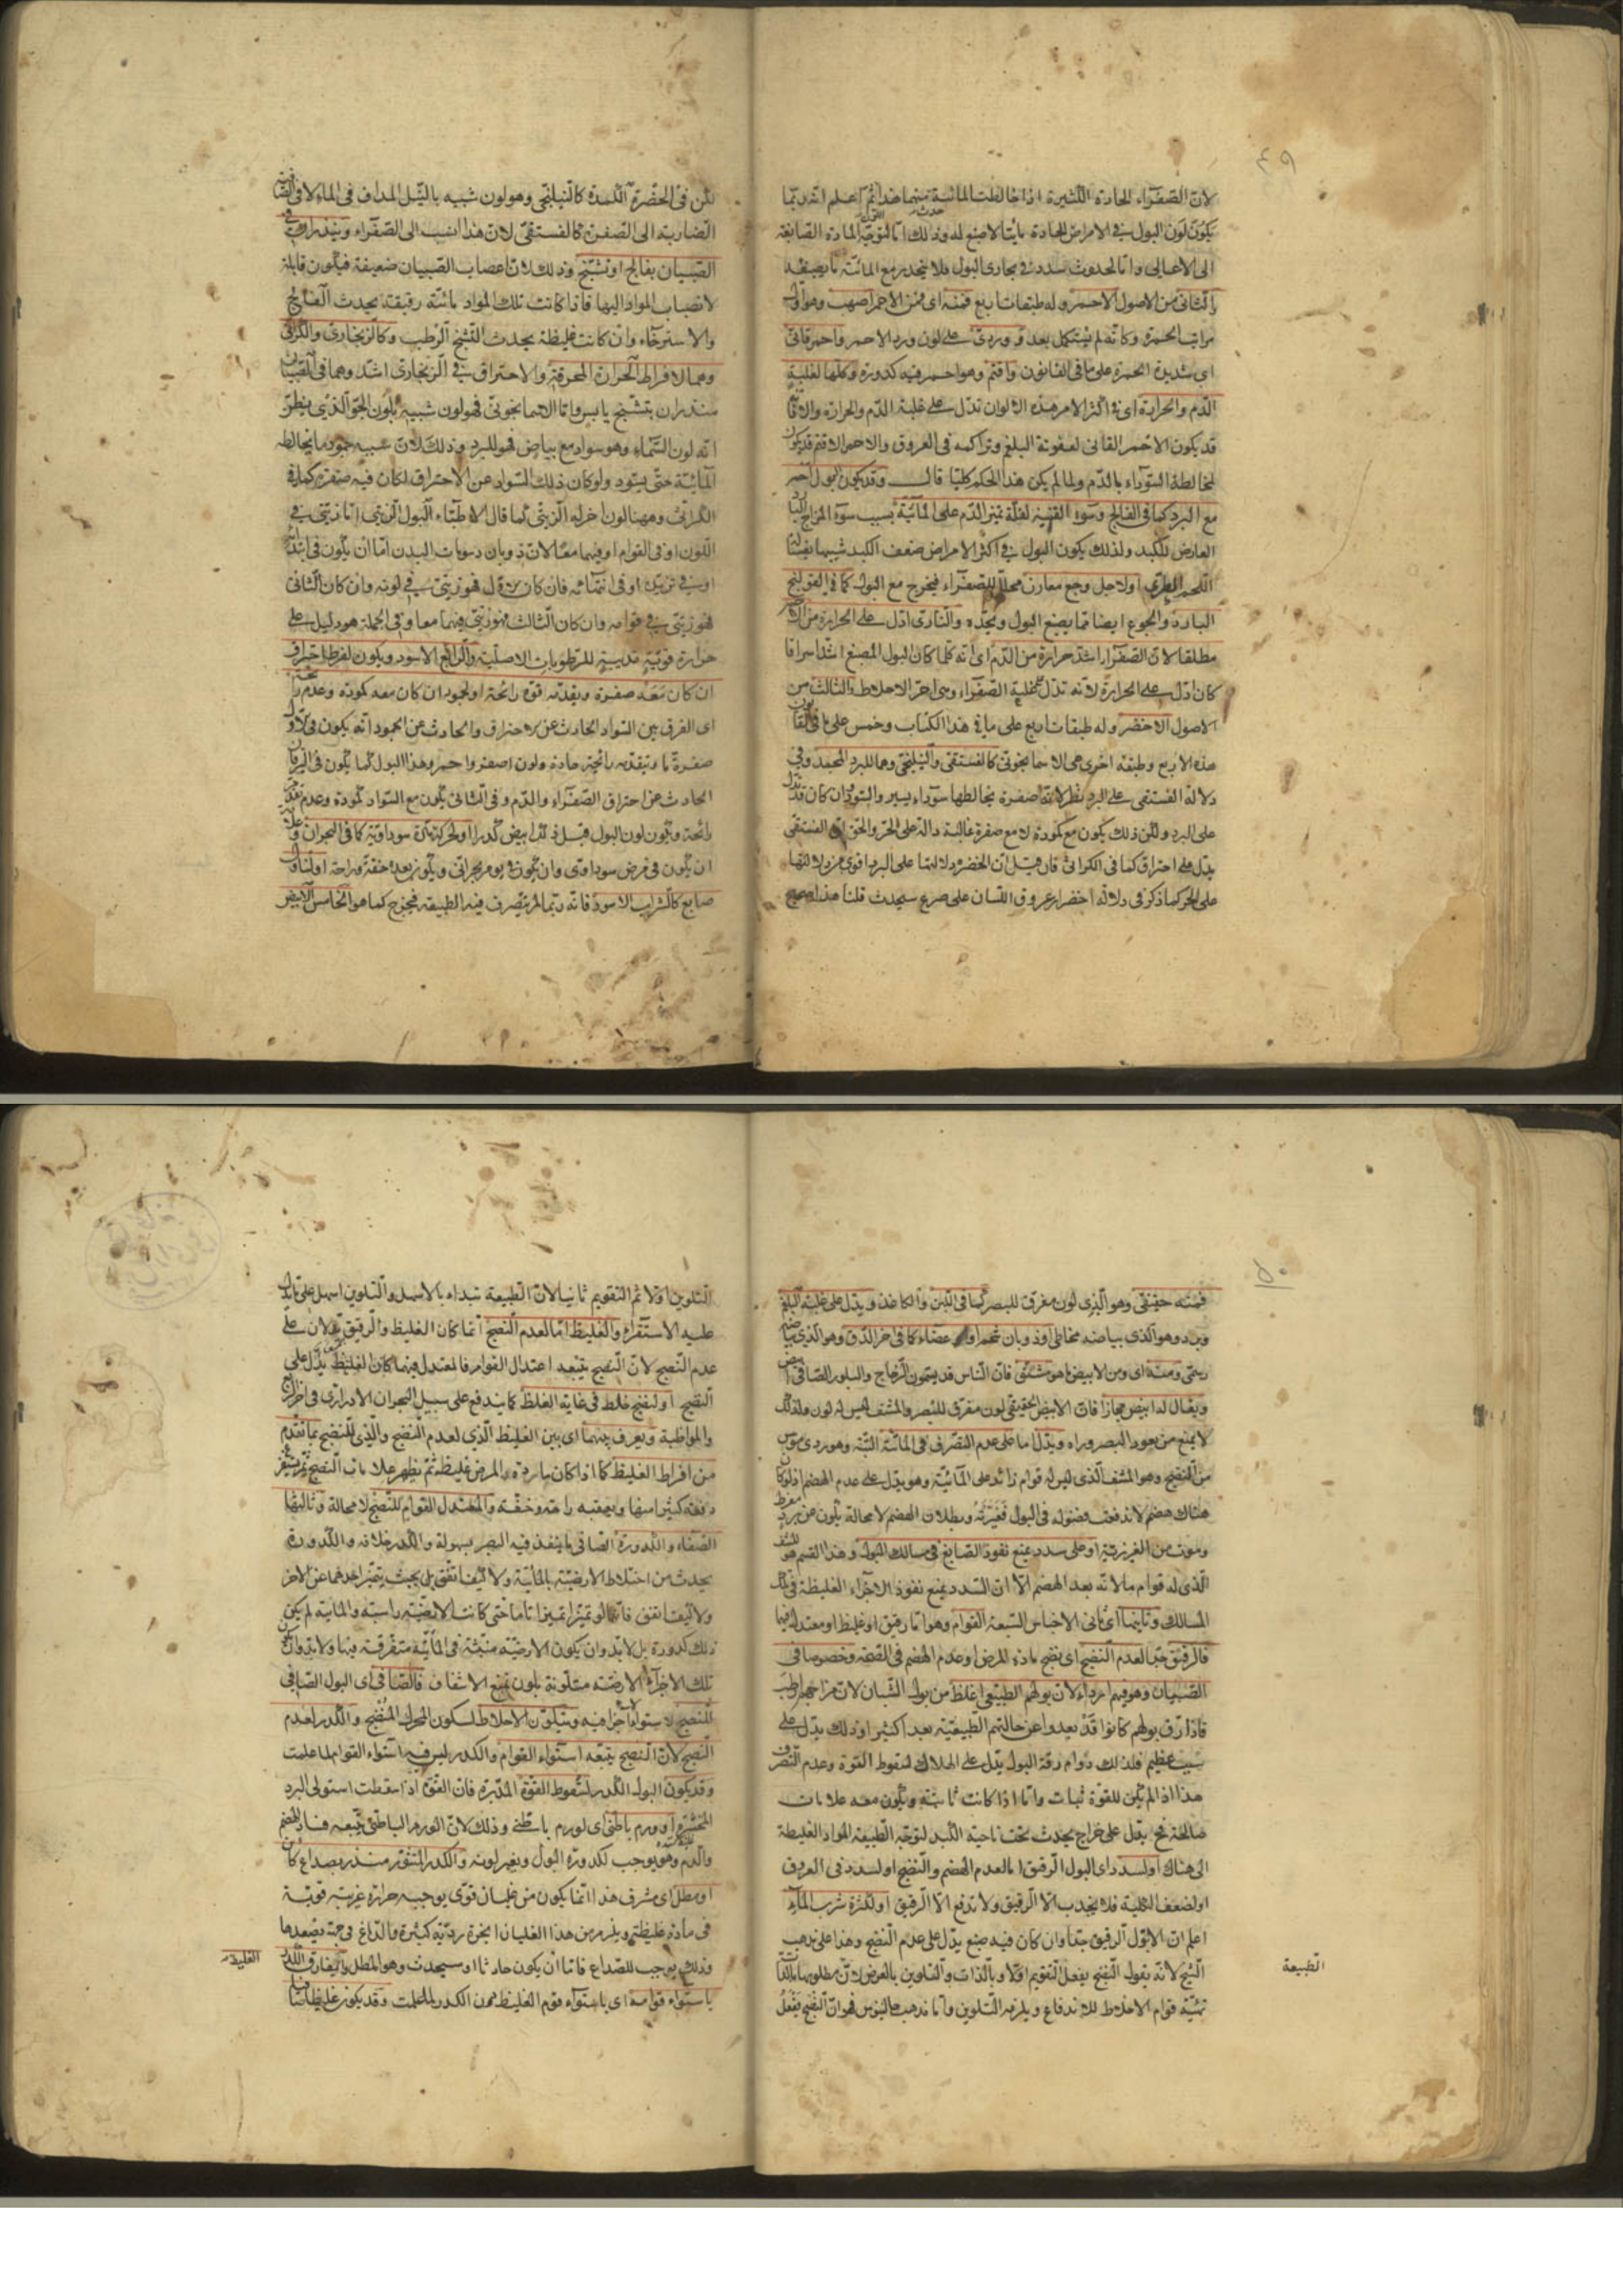 ٤٩
لان الصفراء الحادة الكثيرة اذا خالطت المائية منهما هذا ثم اعلم انه ربما
يكون لون البول في الامراض الحادة بالصابغة
الى الاعالى واما لحدوث سدد في مجارى البول فلا ينحدر مع المائية ما يصبغه
والثانى من الاصول الاحمر وله طبقات اربع فمنه اى فمن الاحمر اصهب وهو اول
مراتب الحمرة وكانه لم يستكمل بعد و وردى على لون ورد الاحمر واحمر قانى
اى شديدة الحمرة على ما فى القانون واقتم وهو احمر فيه كدورة وكلها لغلبة
الدم والحرارة اى فى اكثر الامر هذه الالوان تدل على غلبة الدم والحرارة والا
قد يكون الاحمر القانى لعفونة البلغم وتراكمه فى العروق والاحمر الاقتم قد يكون
لمخالطة السوداء بالدم ولما لم يكن هذا الحكم كليا قال وقد يكون البول احمر
مع البرد كما فى الفالج وسوء القنية لقلة تميز الدم على المائية بسبب سوء المزاج
العارض للكبد ولذلك يكون البول فى اكثر الامراض ضعف الكبد شبيها بغسالة
اللحم الطرى اولاجل وجع مقارن محلل للصفراء فيخرج مع البول كما فى القولنج
البارد والجوع ايضا مما يصبغ البول ويحده والنارى ادل على الحرارة من
مطلقا لان الصفراء اشد حرارة من الدم اى انه كلما كان البول المصبغ اشد اسراقا
كان ادل على الحرارة لانه تدل على غلبة الصفراء وهى احر الاخلاط والثالث من
الاصول الاخضر وله طبقات اربع على ما فى هذا الكتاب وخمس على ما فى
هذه الاربع وطبقة اخرى هى الاسمانجونى كالفستقى والنيلنجى وهما للبرد المجمد وفى
دلالة الفستقى على البرد نظر لانه صفرة يخالطها سوداء يسير والسواد ان كان قد
على البرد ولكن ذلك يكون مع كمودة لا مع صفرة غالبة دالة على الحر والحق ان الفستقى
يدل على احتراق كما فى الكراثى فان قيل ان الخضرة دلالتها على البرد اقوى من دلالتها
على الحر كما ذكر فى دلالة اخضرار عروق اللسان على صرع سيحدث قلنا هذا صحيح
لكن فى الخضرة الكمدة كالنيلنجى وهو لون شبيه بالنيل المداف فى الماء لا فى
الضاربة الى الصفرة كالفستقى لان هذا انسب الى الصفراء وينذران فى
الصبيان بفالج او تشنج وذلك لان اعصاب الصبيان ضعيفة فيكون قابلة
لانصباب المواد اليها فاذا كانت تلك المواد مائية رقيقة يحدث الفالج
والاسترخاء وان كانت غليظة يحدث التشنج الرطب وكالزنجارى والكراثى
وهما لافراط الحرارة المحرقة والاحتراق فى الزنجارى اشد وهما فى الصبيان
منذران بتشنج يابس واما الاسمانجونى فهو لون شبيه بلون الجو الذى يظن
انه لون السماء وهو سواد مع بياض فهو للبرد وذلك لان شبيه جمود ما يخالطه
المائية حتى يسود ولو كان ذلك السواد عن الاحتراق لكان فيه صفرة كما فى
الكراثى وههنا لون اخر له الزيتى كما قال الاطباء البول الزيتى اما زيتى فى
اللون او فى القوام او فيهما معا لان ذوبان دسومات البدن اما ان يكون فى ابتدائه
او فى تزيده او فى انتهائه فان كان الاول فهو زيتى فى لونه وان كان الثانى
فهو زيتى فى قوامه وان كان الثالث فهو زيتى فيهما معا وفى الجملة هو دليل على
حرارة قوية مذيبة للرطوبات الاصلية والرابع الاسود ويكون لفرط احتراق
ان كان معه صفرة ويقدمه قوة رائحة او لجمود ان كان معه كمودة وعدم رائحة
اى الفرق بين السواد الحادث عن الاحتراق والحادث عن الجمود انه يكون فى الاول
صفرة ما ويتقدمه رائحة حادة ولون اصفر واحمر وهذا البول كما يكون فى اليرقان
الحادث عن احتراق الصفراء والدم وفى الثانى يكون مع السواد كمودة وعدم
رائحة ويكون لون البول قبل ذلك ابيض كدرا او لحركة مادة سوداوية كما فى البحران
ان يكون فى مرض سوداوى وان يكون فى يوم بحرانى ويكون بعده خفة وراحة او لتناول
صابغ كالشراب الاسود فانه ربما لم يتصرف فيه الطبيعة فيخرج كما هو الخامس الابيض
٥٠
فمنه حقيقى وهو الذى لون مفرق للبصر كما فى اللبن والكاغذ ويدل على غلبة البلغم
وبرد وهو الذى بياضه مخاطى او ذوبان شحم او اعضاء كما فى اخر الدق وهو الذى بياضه
ومنه اى ومن الابيض ما هو مشف فان الناس قد يسمون الزجاج والبلور الصافى ابيض
ويقال له ابيض مجازا فان الابيض الحقيقى لون مفرق للبصر والمشف ليس له لون ولذلك
لا يمنع من نفوذ البصر وراه ويدل اما على عدم التصرف فى المائية البتة وهو ردى
من النضج وهو المشف الذى ليس له قوام زائد على المائية وهو يدل على عدم الهضم اذ لو كان
هناك هضم لاندفعت فضوله فى البول فغيرته وبطلان الهضم لا محالة يكون عن برد مفرط
وموت من الغريزية او على سدد يمنع نفوذ الصابغ فى مسالك البول وهذا القسم هو المشف
الذى له قوام ما لانه بعد الهضم الا ان السدد يمنع نفوذ الاجزاء الغليظة فى تلك
المسالك وثانيها اى ثانى الاجناس السبعة القوام وهو اما رقيق او غليظ او معتدل بينهما
فالرقيق جدا لعدم النضج اى نضج مادة المرض او عدم الهضم فى الصحة وخصوصا فى
الصبيان وهو فيهم اردى لان بولهم الطبيعى اغلظ من بول الشبان لان مزاجهم ارطب
فاذا رق بولهم كانوا قد بعدوا عن حالتهم الطبيعية بعدا كثيرا وذلك يدل على
سبب عظيم فلذلك دوام رقة البول يدل على الهلاك لسقوط القوة وعدم التصرف
هذا اذا لم يكن للقوة ثبات واما اذا كانت ثابتة ويكون معه علامات
صالحة فح يدل على خراج يحدث تحت ناحية الكبد لتوجه الطبيعة المواد الغليظة
الى هناك او لسدد اى البول الرقيق اما لعدم الهضم والنضج او لسدد فى العروق
او لضعف الكلية فلا يجذب الا الرقيق ولا تدفع الا الرقيق او لكثرة شرب الماء
اعلم ان الاول الرقيق جدا وان كان فيه صبغ يدل على عدم النضج وهذا على مذهب
الشيخ لانه يقول النضج يفعل التقويم اولا وبالذات والتلوين بالعرض لان مطلوبها بالذات
تهيئة قوام الاخلاط للاندفاع ويلزمه التلوين واما مذهب جالينوس فهو ان النضج يفعل
الطبيعة
التلوين اولا ثم التقويم ثانيا لان الطبيعة تبداء بالاسهل والتلوين اسهل على ما يدل
عليه الاستقراء والغليظ اما لعدم النضج انما كان الغليظ والرقيق يدلان على
عدم النضج لان النضج يتبعه اعتدال القوام فالمعتدل فيهما كان الغليظ يدل على
النضج او لنضج خلط فى غاية الغلظ كما يندفع على سبيل البحران الادرارى فى اخر
والمواظبة ويعرف بينهما اى بين الغليظ الذى لعدم النضج والذى للنضج بما تقدم
من افراط الغليظ كما اذا كان مادة المرض غليظة ثم يظهر علامات النضج ثم يستفرغ
دفعة كثيرا سهلا ويعقبه راحة وخفة والمعتدل القوام للنضج لا محالة وثالثها
الصفاء والكدورة الصافى ما ينفذ فيه البصر بسهولة والكدر خلافه والكدورة
يحدث من اختلاط الارضية بالمائية ولا كيف اتفق بل بحيث يتميز احدهما عن الاخر
ولا كيف اتفق فانهما لو تميزا تميزا تاما حتى كانت الارضية راسبة والمائية لم يكن
ذلك كدورة بل لا بد وان يكون الارضية منبثة فى المائية متفرقة فيها ولا بد وان يكون
تلك الاجزاء الارضية متلونة بلون يمنع الاشفاف فالصافى اى البول الصافى
للنضج لاستواء اجزائه وسكون الاخلاط لسكون المحرك المنضج والكدر لعدم
النضج لان النضج يتبعه استواء القوام والكدر ليس فيه استواء القوام لما علمت
وقد يكون البول الكدر لسقوط القوة المدبرة فان القوة اذا سقطت استولى البرد
المخثر او ورم باطنى اى لورم باطنى وذلك لان الورم الباطنى يتبعه فساد الهضم
والدم وهو يوجب لكدورة البول وتغير لونه والكدر المتثور منذر بصداع كائن
او مطل اى مشرف هذا انما يكون من غليان قوى يوجبه حرارة غريبة قوية
فى مادة غليظة ويلزم من هذا الغليان ابخرة ردية كثيرة والدماغ فى جهة تصعدها
وذلك يوجب للصداع فاما ان يكون حادثا او سيحدث وهو المطل والغليظ يفارق الكدر
باستواء قوامه اى باستواء قوم الغليظ دون الكدر لما علمت وقد يكون غليظا
الغليظ